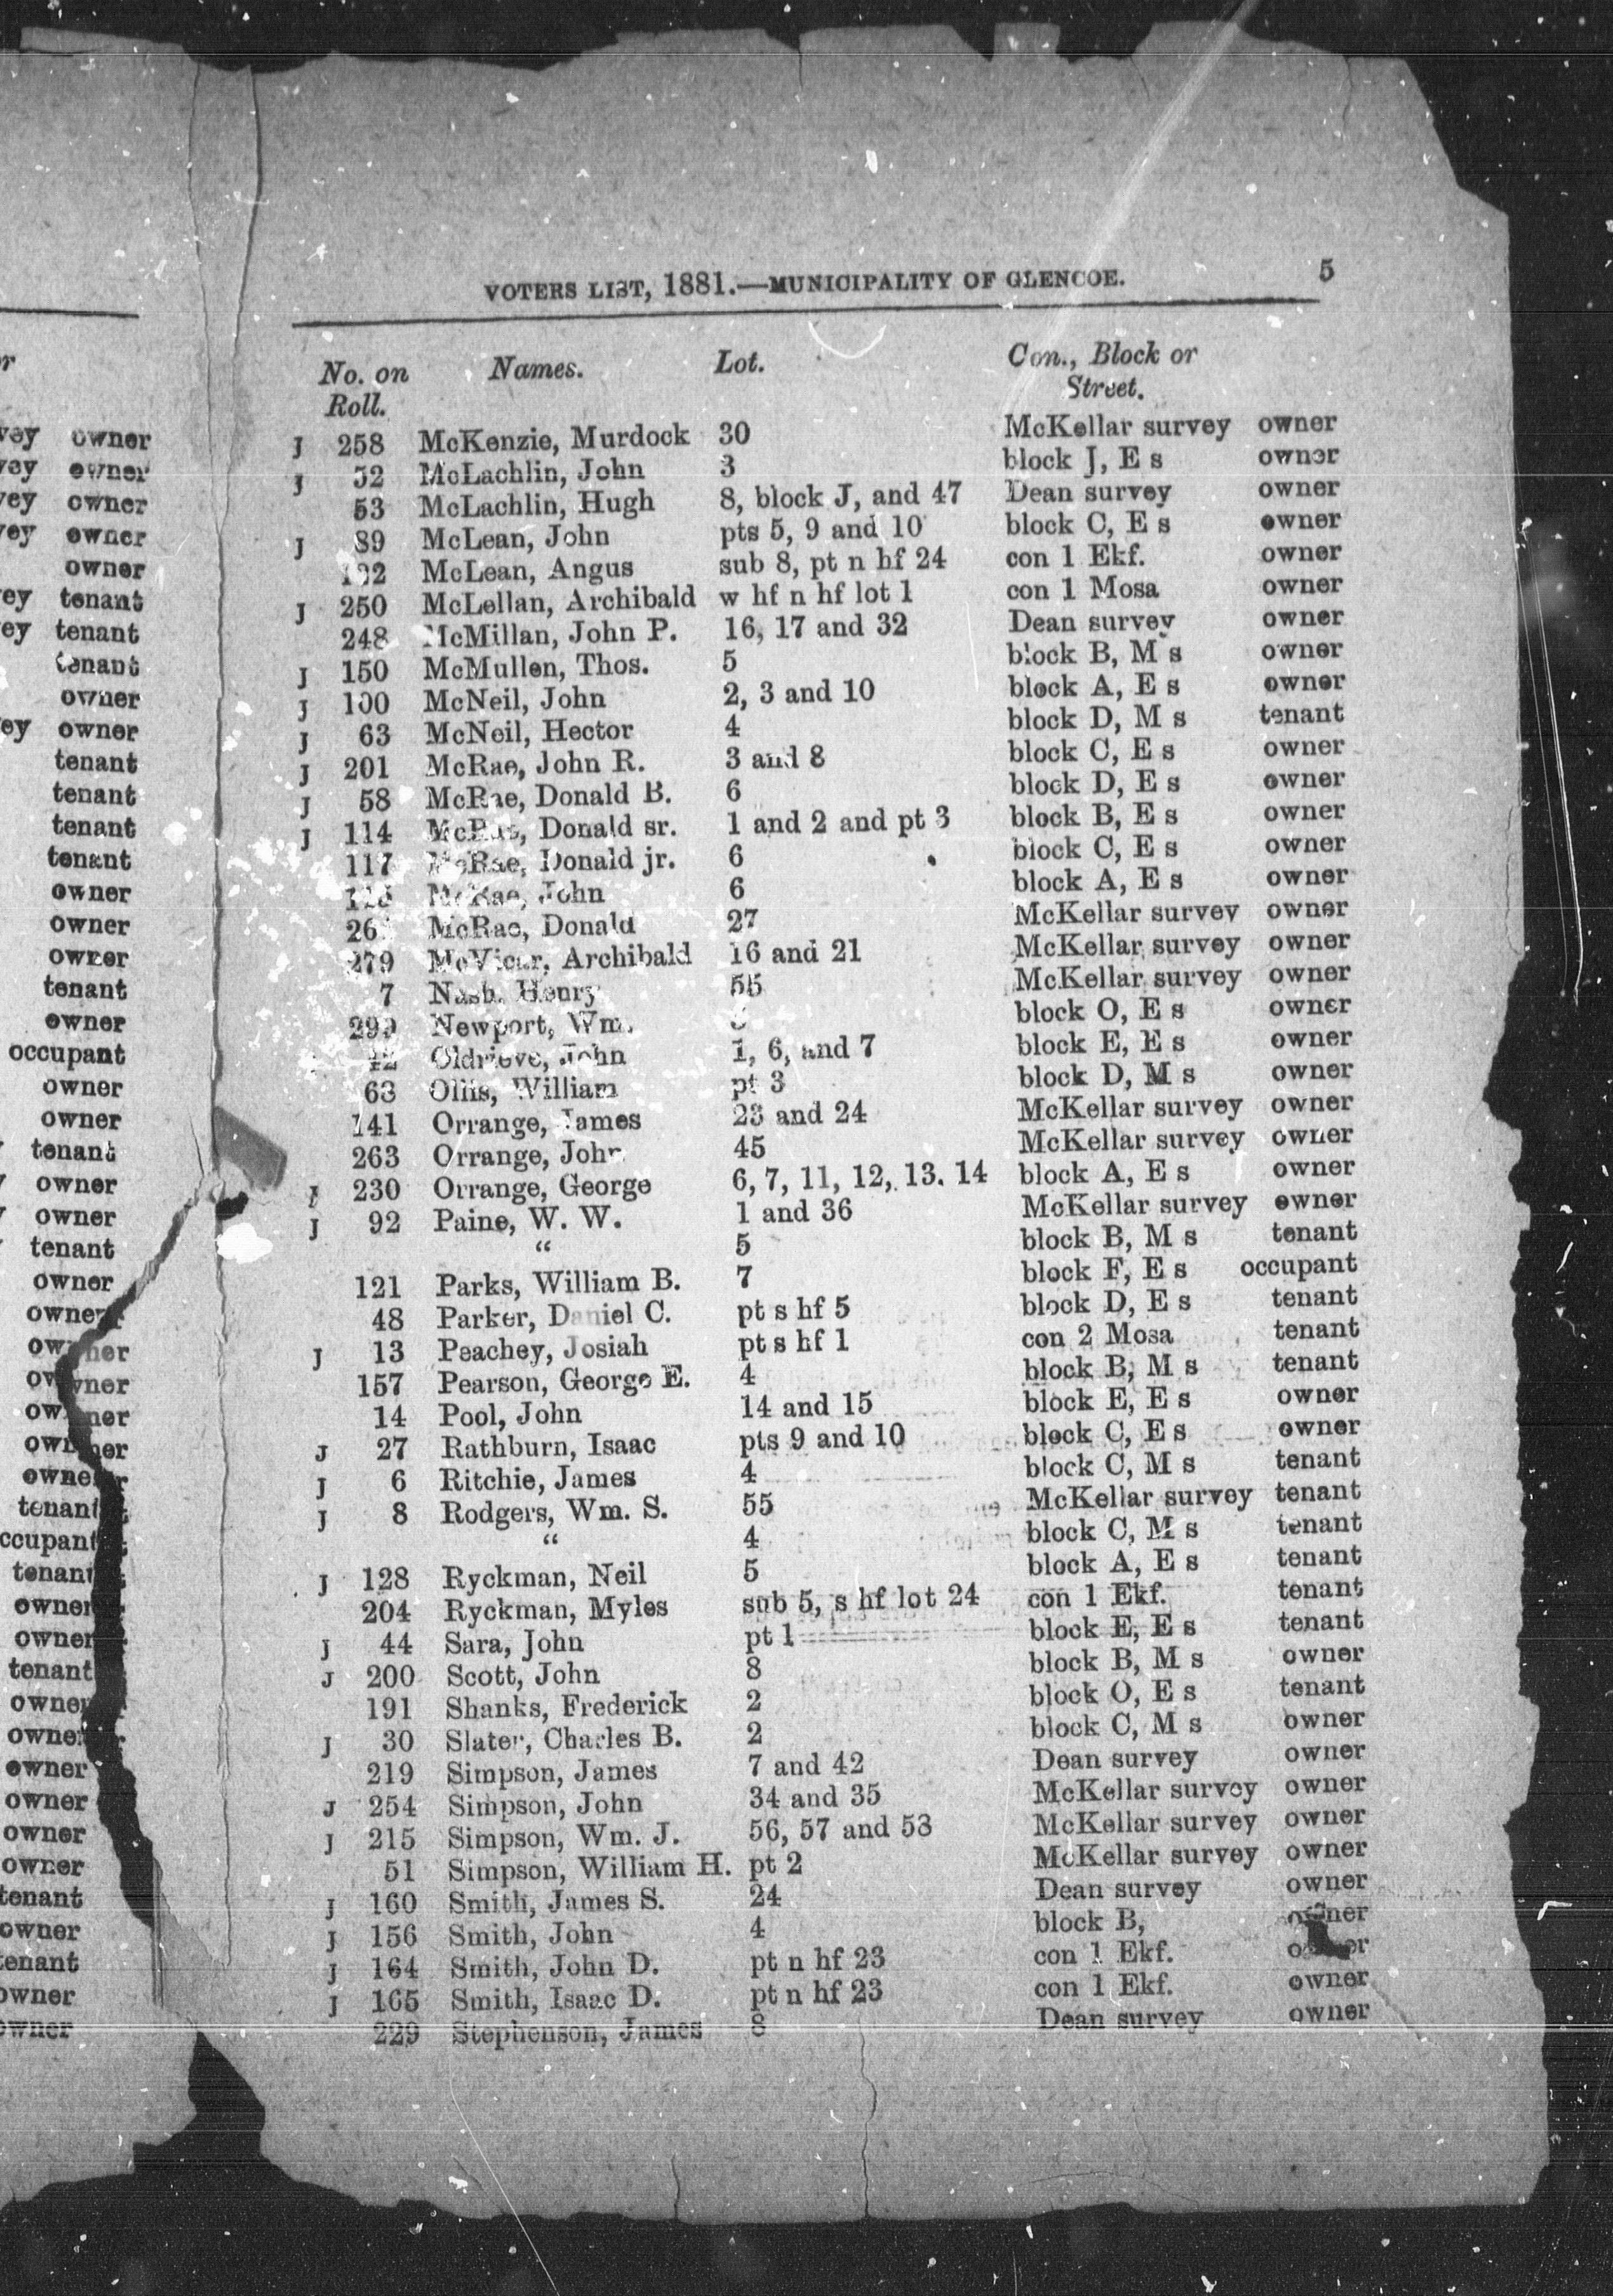 owner
owner
owner
owner
owner
tenant
tenant
tenant
owner
owner
tenant
tenant
tenant
tenant
owner
owner
owner
tenant
owner
occupant
owner
owner
tenant
owner
owner
tenant
owner
owner
owner
owner
owner
owner
owner
tenant
occupant
tenant
owner
owner
tenant
owner
owner
owner
owner
owner
owner
tenant
owner
tenant
owner
owner
VOTERS LIST, 1881.—MUNICIPALITY OF GLENCOE. 5
No. on Names. Lot. Con., Block or
Roll. Street.
J 258 McKenzie, Murdock 30 McKellar survey owner
J 52 McLachlin, John 3 block J, E s owner
53 McLachlin, Hugh 8, block J, and 47 Dean survey owner
J 89 McLean, John pts 5, 9 and 10 block C, E s owner
McLean, Angus sub 8, pt n hf 24 con 1 Ekf. owner
J 250 McLellan, Archibald w hf n hf lot 1 con 1 Mosa owner
248 McMillan, John P. 16, 17 and 32 Dean survey owner
J 150 McMullen, Thos. 5 block B, M s owner
J 100 McNeil, John 2, 3 and 10 block A, E s owner
J 63 McNeil, Hector 4 block D, M s tenant
J 201 McRae, John R. 3 and 8 block C, E s owner
J 58 McRae, Donald B. 6 block D, E s owner
J 114 McRae, Donald sr. 1 and 2 and pt 3 block B, E s owner
117 McRae, Donald jr. 6 block C, E s owner
McRae, John 6 block A, E s owner
McRae, Donald 27 McKellar survey owner
279 McVicar, Archibald 16 and 21 McKellar survey owner
7 Nash, Henry 55 McKellar survey owner
299 Newport, Wm. block O, E s owner
42 Oldrieve, John 1, 6, and 7 block E, E s owner
63 Ollis, William pt 3 block D, M s owner
141 Orrange, James 23 and 24 McKellar survey owner
263 Orrange, John 45 McKellar survey owner
J 230 Orrange, George 6, 7, 11, 12, 13. 14 block A, E s owner
J 92 Paine, W. W. 1 and 36 McKellar survey owner
“ 5 block B, M s tenant
121 Parks, William B. 7 block F, E s occupant
48 Parker, Daniel C. pt s hf 5 block D, E s tenant
J 13 Peachey, Josiah pt s hf 1 con 2 Mosa tenant
157 Pearson, George E. 4 block B, M s tenant
14 Pool, John 14 and 15 block E, E s owner
J 27 Rathburn, Isaac pts 9 and 10 block C, E s owner
J 6 Ritchie, James 4 block C, M s tenant
J 8 Rodgers, Wm. S. 55 McKellar survey tenant
“ 4 block C, M s tenant
J 128 Ryckman, Neil 5 block A, E s tenant
204 Ryckman, Myles sub 5, s hf lot 24 con 1 Ekf. tenant
J 44 Sara, John pt 1 block E, E s tenant
J 200 Scott, John 8 block B, M s owner
191 Shanks, Frederick 2 block O, E s tenant
J 30 Slater, Charles B. 2 block C, M s owner
219 Simpson, James 7 and 42 Dean survey owner
J 254 Simpson, John 34 and 35 McKellar survey owner
J 215 Simpson, Wm. J. 56, 57 and 58 McKellar survey owner
51 Simpson, William H. pt 2 McKellar survey owner
J 160 Smith, James S. 24 Dean survey owner
J 156 Smith, John 4 block B, owner
J 164 Smith, John D. pt n hf 23 con 1 Ekf. owner
J 165 Smith, Isaac D. pt n hf 23 con 1 Ekf. owner
229 Stephenson, James 8 Dean survey owner